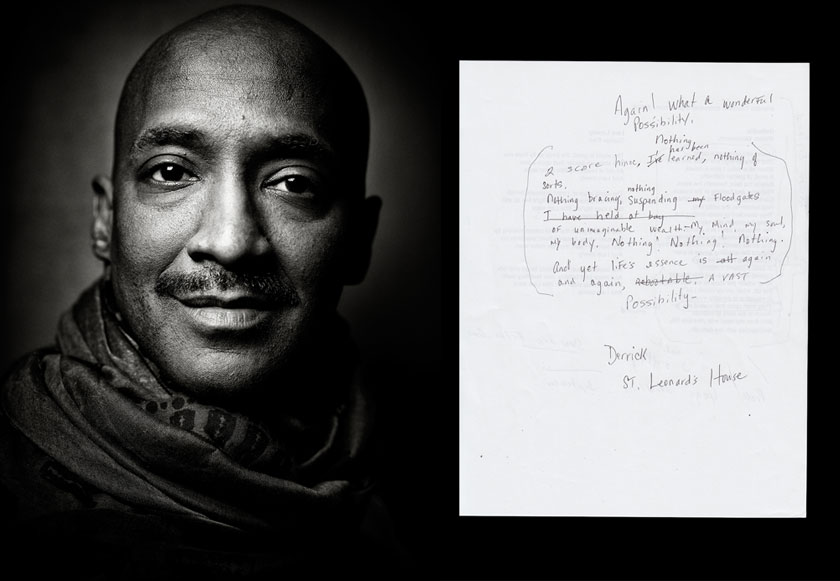 Again! What a wonderful
Possibility.
Nothing
has been
2 score hince, I've learned, nothing of
sorts.
nothing
Nothing bracing, suspending my Floodgates
I have held at bay
of unimaginable wealth - My Mind, my soul,
my body. Nothing! Nothing! Nothing.
And yet life's essence is all again
and again, A VAST
Possibility-
Derrick
ST. Leonard's House